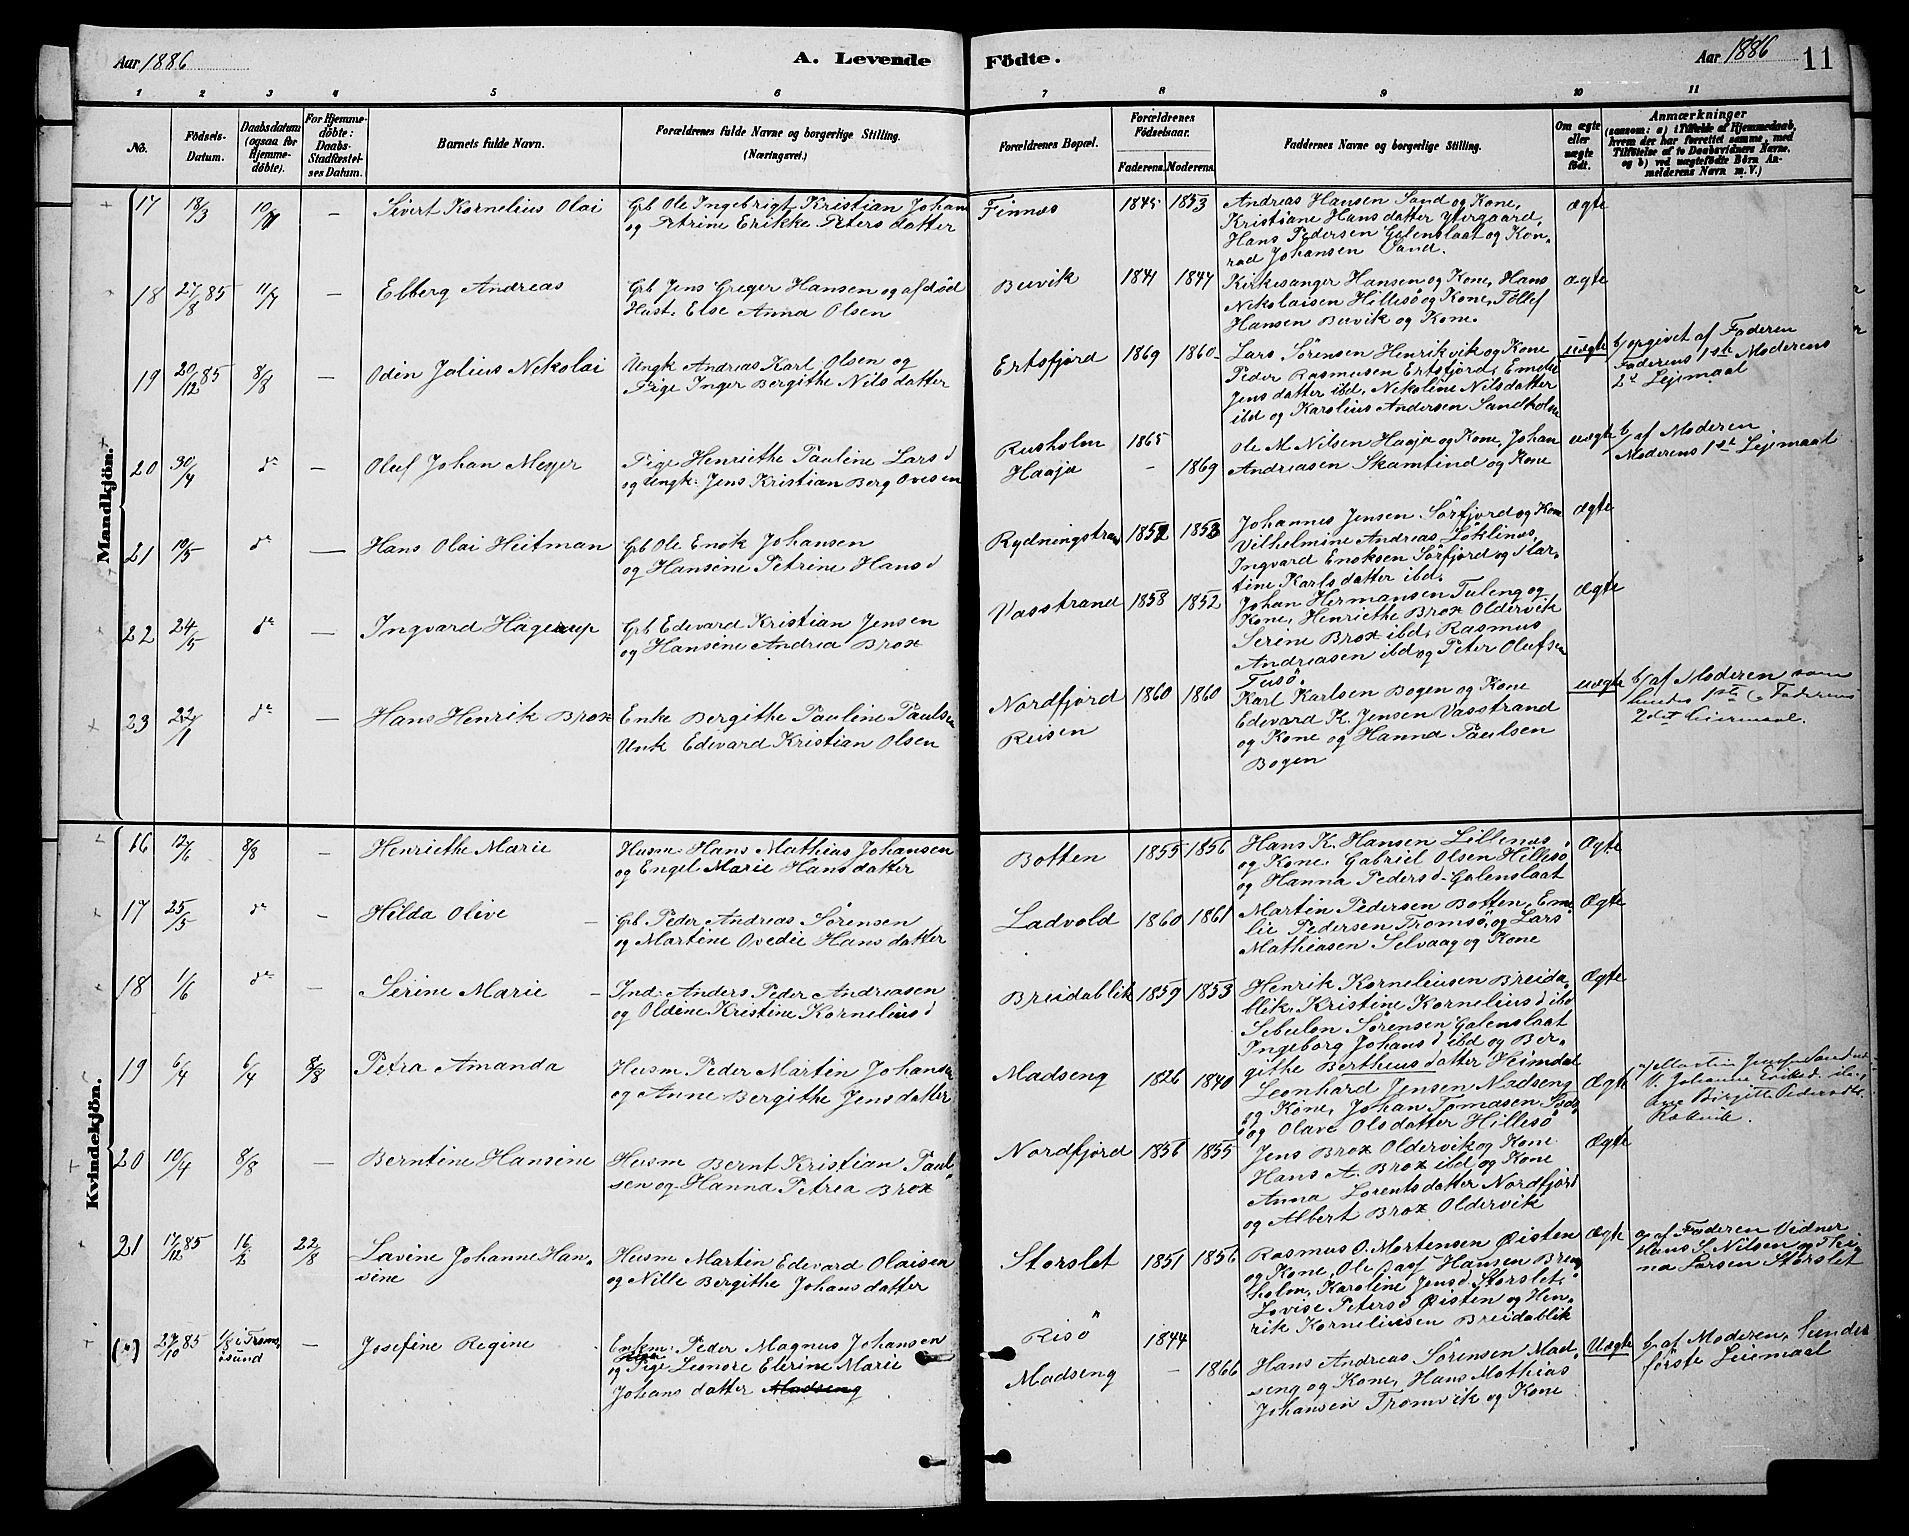 Aar 1886
A. Levende
Födte.
Aar 1886
11
1 2 3 4 5 6 7 8 9 10 11
No.
Födsels-
Datum.
Daabsdatum
(ogsaa for
Hjemme-
döbte).
For Hjemme-
döbte:
Daabs-
Stadfæstel-
ses Datum.
Barnets fulde Navn.
Forældrenes fulde Navne og borgerlige Stilling.
(Næringsvei.)
Forældrenes Bopæl.
Forældrenes
Födselsaar.
Faderens.
Moderens.
Faddernes Navne og borgerlige Stilling.
Om ægte
eller
uægte
födt.
Anmærkninger
(saasom: a) i Tilfælde af Hjemmedaab,
hvem der har forrettet samme, med
Tilföielse af to Daabsvidners Navne,
og b) ved uægtefödte Börn An-
melderens Navn m. V.)
Mandkjön.
17 18/3 — Sivert Kornelius Olai
Grb Ole Ingebrigt Kristian Johan
og Petrine Erikke Peters datter
Finnes 1845 1853
Andreas Hansen Sand og Kone,
Kristiane Hans datter Ytergaard,
Hans Pedersen Galenslaat og Kon-
rad Johansen Sand.
ægte
18 27/8 85 11/7 — Elberg Andreas
Grb Jens Greger Hansen og afdöd
Hust. Else Anna Olsen
Buvik 1841 1847
Kirkesanger Hansen og Kone, Hans
Nikolaisen Hillesö og Kone, Tollef
Hansen Buvik og Kone.
ægte
19 20/12 85 8/8 — Odin Julius Nekolai
Ungk Andreas Karl Olsen og
Pige Inger Bergithe Nils datter
Ertsfjord 1869 1860
Lars Sørensen Henrikvik og Kone
Peder Rasmusen Ertsfjord, Emelie
Jens datter ibd, Nekoline Nilsdatter
ibd og Karolius Andersen Sandholm
uægte
b/ opgivet af Faderen
Faderens 1ste Moderens
2d Lejemaal
20 30/4 do — Oluf Johan Meyer
Pige Henriethe Pauline Lars d
og Ungk: Jens Kristian Berg Ovesen
Rusholm 1865
Haaja — 1869
Ole M. Nilsen Haaja og Kone, Johan
Andreasen Skamtind og Kone
uægte
b/ af Moderen
Moderens 1ste Lejemaal
21 10/5 do — Hans Olai Heitman
Grb Ole Enok Johansen
og Hansene Petrine Hans d
Rydningstran 1852 1853
Johannes Jensen Sörfjord og Kone
Vilhelmine Andreas Löklines,
Ingvard Enoksen Sörfjord og Mar-
tine Karls datter ibd.
ægte
22 24/5 do — Ingvard Hagerup
Grb Edevard Kristian Jensen
og Hansine Andrea Brox
Vasstrand 1858 1852
Johan Hermansen Tuleng og
Kone, Henriethe Brox Oldervik
Serine Brox ibd, Rasmus
Andreasen ibd og Peter Olufsen
Tusö.
ægte
23 22/1 do — Hans Henrik Brox
Enke Bergithe Pauline Paulsen
Unk Edevard Kristian Olsen
Nordfjord 1860 1860
Reisen
Karl Karlsen Bogen og Kone
Edevard K. Jensen Vasstrand
og Kone og Hanna Paulsen
Bogen
uægte
b/ af Moderen som
hendes 1ste og Faderens
2det Leiermaal.
Kvindekjön.
16 12/6 8/8 — Henriethe Marie
Husm: Hans Mathias Johansen
og Engel Marie Hans datter
Botten 1855 1856
Hans K. Hansen Lillenes
og Kone, Gabriel Olsen Hillesö
og Hanna Peders d. Galenslaat
Ægte
17 25/5 do — Hilda Olive
Grb Peder Andreas Sörensen
og Martine Ovedie Hans datter
Ladvold 1860 1861
Martin Pedersen Botten, Eme-
lie Pedersen Tromsö, og Lars
Mathiasen Selvaag og Kone
Ægte
18 1/6 do — Serine Marie
Ind: Anders Peder Andreasen
og Oldene Kristine Kornelius d
Breidablik 1859 1853
Henrik Korneliusen Breida-
blik, Kristine Kornelius d ibd
Sebulon Sörensen Galenslaat
Ingeborg Johans d ibd og Ber-
githe Bertheus datter Heimdal
Ægte
19 6/4 6/4 8/8 Petra Amanda
Husm Peder Martin Johansen
og Anne Bergithe Jens datter
Madseng 1826 1840
Leonhard Jensen Madseng
og Kone, Johan Tomasen
og Olave Ols datter Hillesö
Ægte
V. Johanne
20 10/4 8/8 — Berntine Hansine
Husm Bernt Kristian Paul-
sen og Hanna Petrea Brox
Nordfjord 1856 1855
Jens Brox Oldervik og Kone
Hans A. Brox ibd og Kone
Anna Lorents datter Nordfjord
og Albert Brox Oldervik
Ægte
21 17/12 85 16/2 22/8 Lavine Johanne Han-
sine
Husm Martin Edevard Olaisen
og Nille Bergithe Johans datter
Storslet 1851 1856
Rasmus O. Mortensen Øisten
og Kone, Ole Daj Hansen Bren-
holm, Karoline Jens d Storslet,
Lovise Peters d Øisten og Hen-
rik Korneliusen Breidablik
Ægte
a/ af Faderen Vidner
Hans S. Nilsen og Tri
na Larsen Storslet
27/10 85 1/8 i Troms-
ösund — Josefine Regine
Enkm: Peder Magnus Johansen
og Pige Leonore Elerine Marie
Johans datter Madseng
Risö 1844
Madseng — 1866
Hans Andreas Sörensen Mad-
seng og Kone, Hans Mathias
Johansen Tromvik og Kone
Uægte
b/ af Moderen, hendes
förste Leiemaal